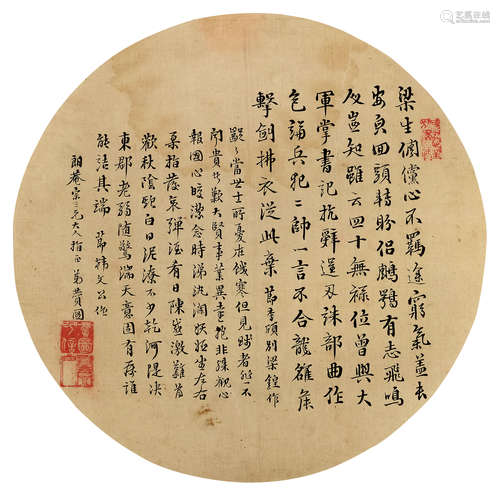 梁生倜儻心不羈途窮氣蓋長
安兒回頭轉盼侶鵰鶚有志飛鳴
人豈知雖云四十無祿位曾與大
軍掌書記抗辭請刃誅部曲作
色論兵犯二帥一言不合龍頟侯
擊劍拂衣從此棄 節李頎別梁鍠作
當世士所憂在饑寒但見賤者悲不
聞貴者歎大賢事業異遠抱非俗觀心
報國心皎潔念時涕汍瀾妖姬坐左右
柔指發哀彈酒肴日陳感激難為
歡秋陰欺白日泥潦不少乾河隄決
東郡老弱隨驚湍天意固有屬誰
能詰其端 節韓文公作
大人指正弟費